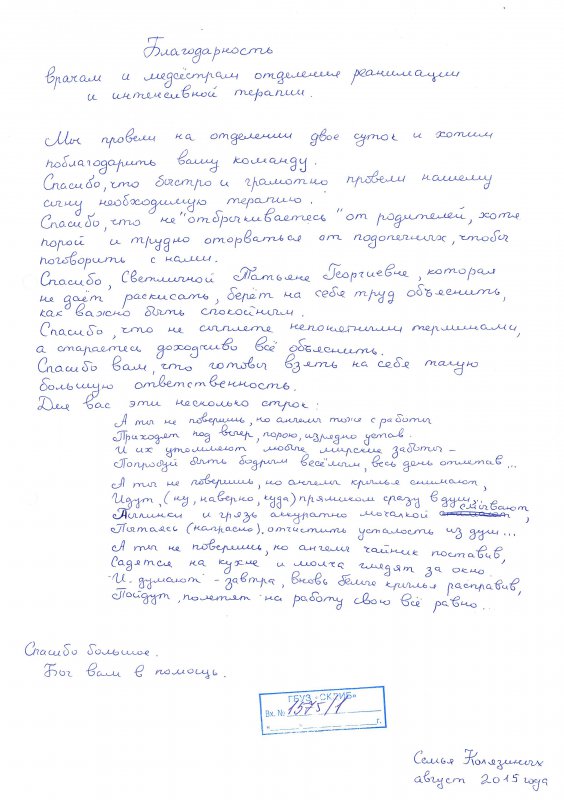 Благодарность
врачам и медсёстрам отделения реанимации
и интенсивной терапии.
Мы провели на отделении двое суток и хотим
поблагодарить вашу команду.
Спасибо, что быстро и грамотно провели нашему
сыну необходимую терапию.
Спасибо, что не "отбрыкиваетесь" от родителей, хотя
порой и трудно оторваться от подопечных, чтобы
поговорить с нами.
Спасибо, Светличной Татьяне Георгиевне, которая
не даёт раскисать, берёт на себя труд объяснить,
как важно быть спокойным.
Спасибо, что не сыплете непонятными терминами,
а стараетесь доходчиво всё объяснить.
Спасибо вам, что готовы взять на себя такую
большую ответственность.
Для вас эти несколько строк:
А ты не поверишь, но ангелы тоже с работы
Приходят под вечер, порою, изрядно устав.
И их утомляют любые мирские заботы –
Попробуй быть бодрым весёлым, весь день отлетав...
А ты не поверишь, но ангелы крылья снимают,
Идут, (ну, наверно, куда) прямиком сразу в душ...
Пылинки и грязь аккуратно мочалкой смывают,
Пытаясь (напрасно) отчистить усталость из душ...
А ты не поверишь, но ангелы чайник поставив,
Садятся на кухне и молча глядят за окно
И думают – завтра, вновь белые крылья расправив,
Пойдут, полетят на работу свою всё равно..
Спасибо большое.
Бог вам в помощь.
ГБУЗ «СКЛИБ»
Вх. № 1575/1
"___"____________ г.
Семья Колязиных
август 2015 года